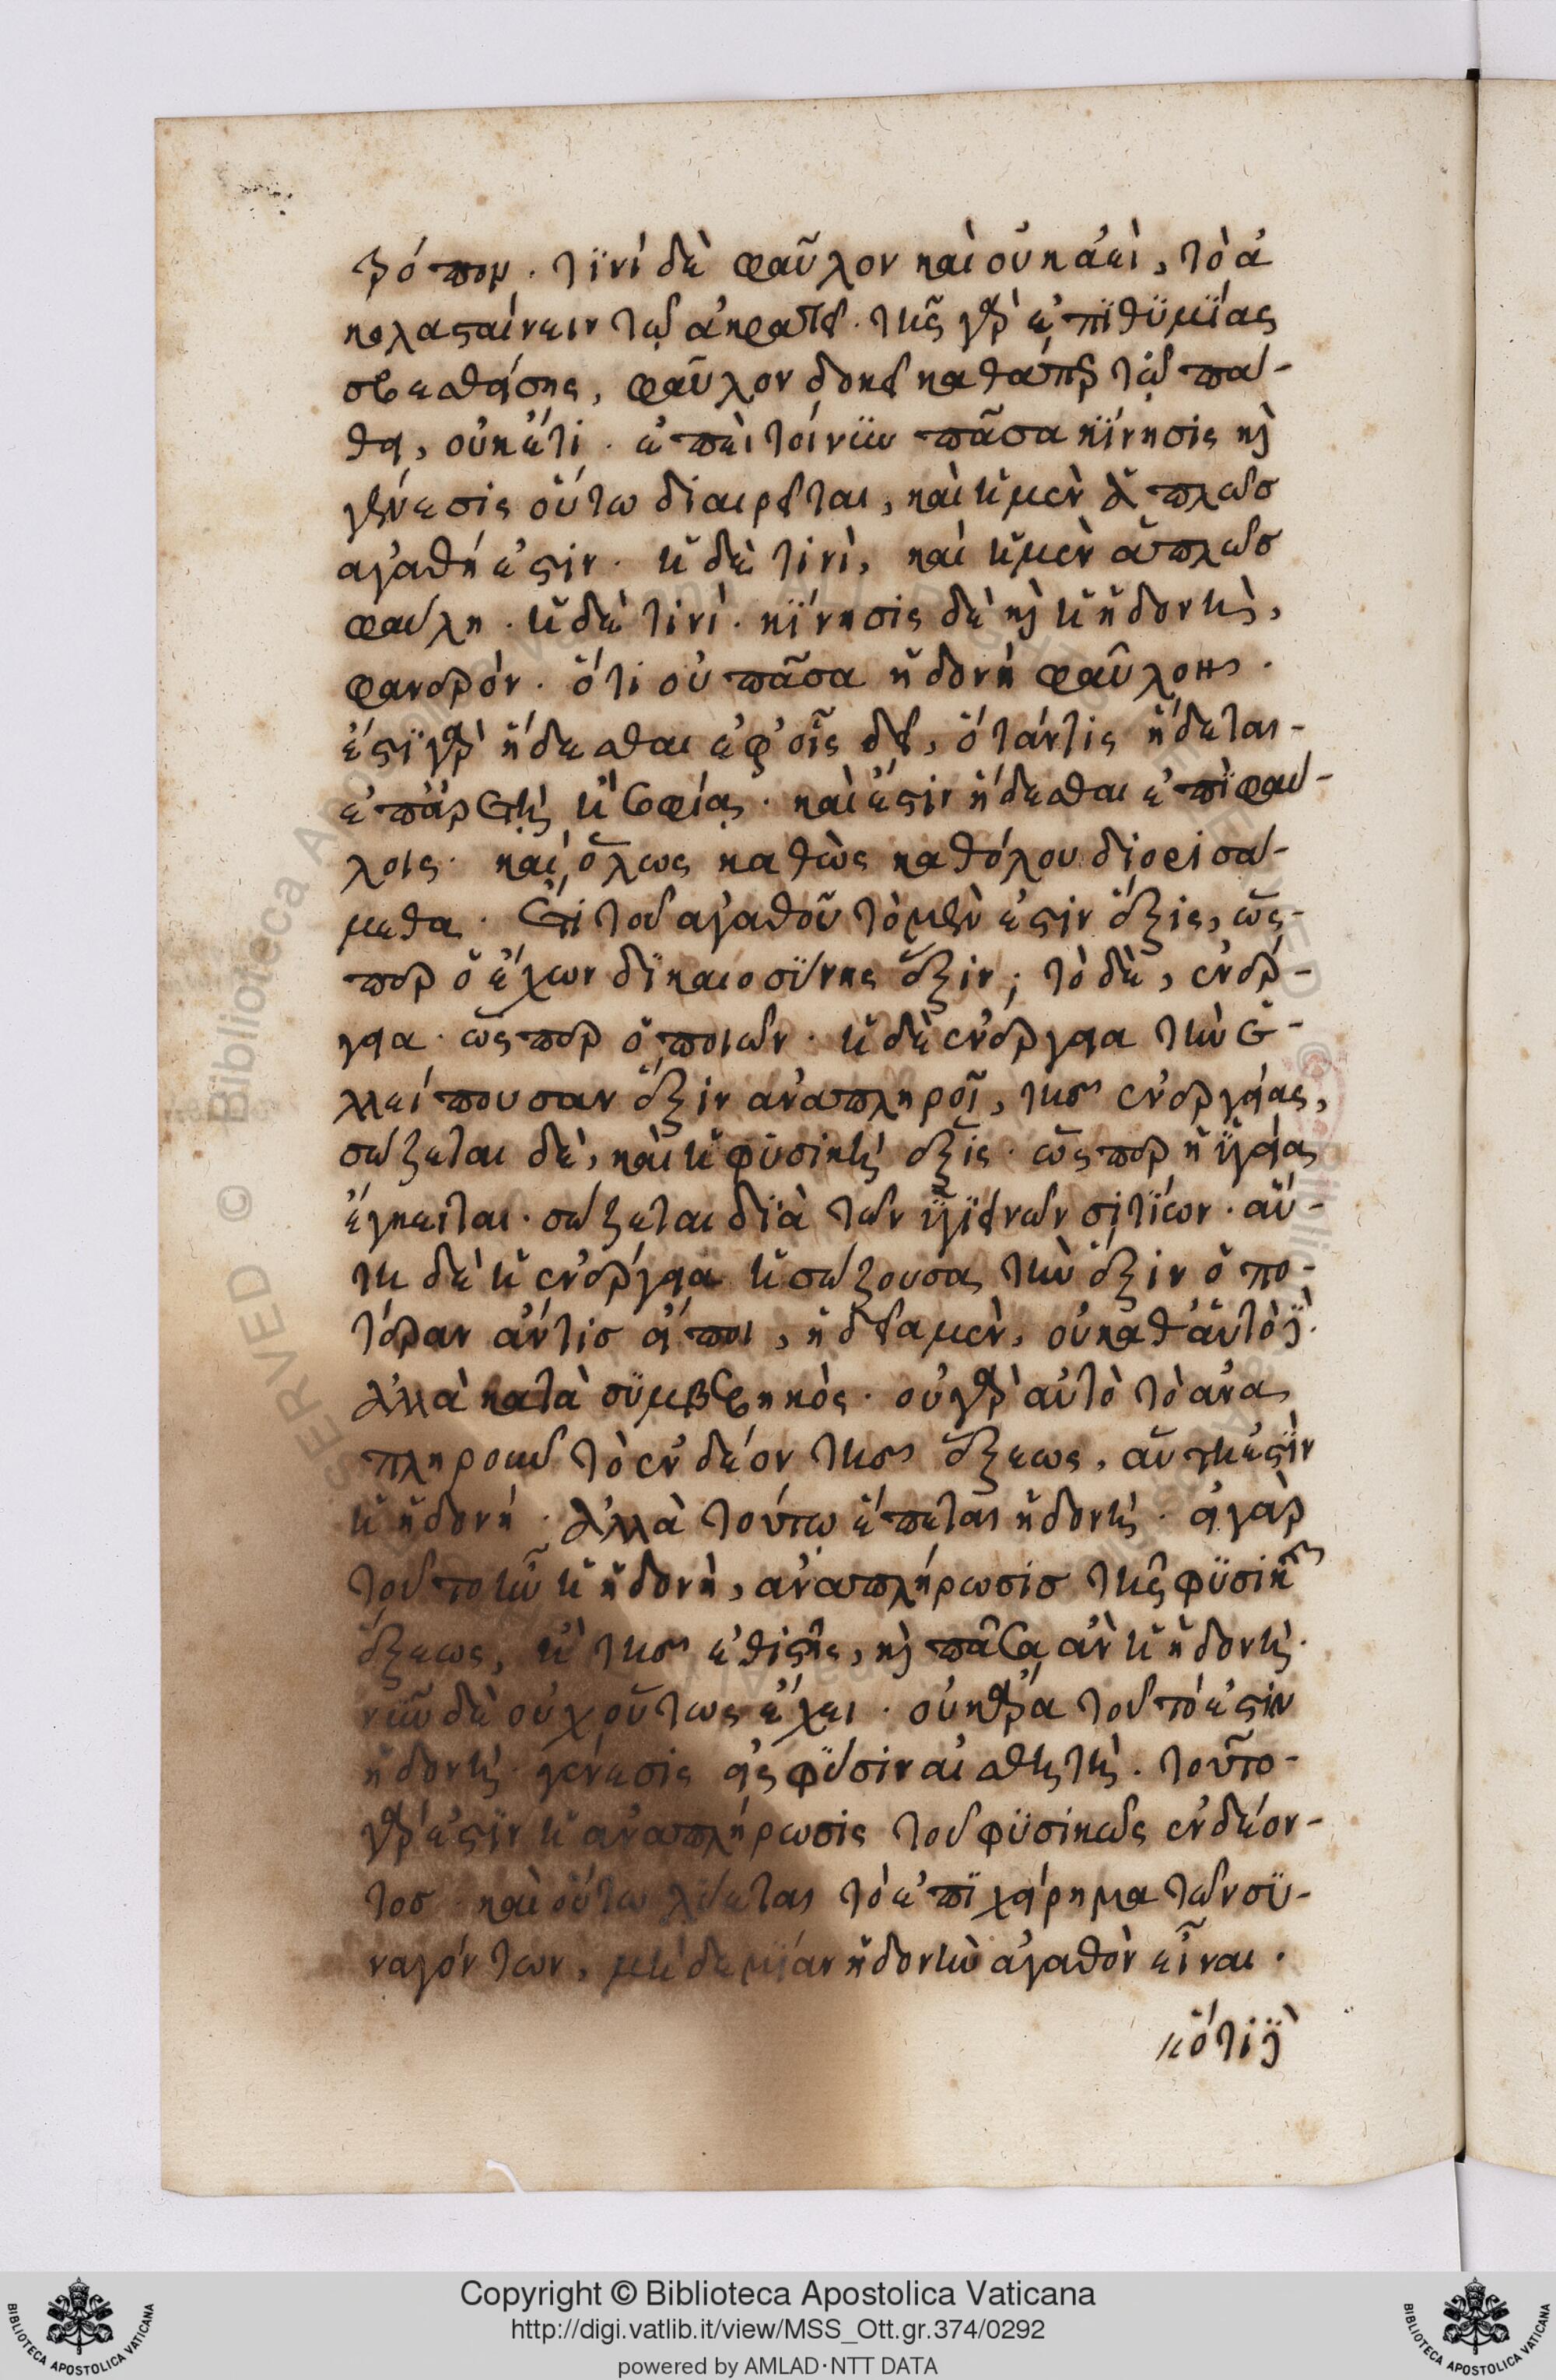 τρόπον. τϊνὶ δὲ φαῦλον καὶ οὐκ ἀεὶ, τὸ ἀ
κολασταίνειν τῷ ἀκρατεῖ. τῆς γὰρ ἐπϊθϋμΐας
σβεσθείσης, φαῦλον δοκεῖ καθάπερ τῷ πα-
θει, οὐκέτι. ἐπεὶ τοίνϋν πᾶσα κΐνησις καὶ
γένεσις οὕτω διαιρεῖται, καὶ ἡ μὲν ἁπλῶσ
αγαθή ἐστιν. ἡ δὲ τινὶ, καὶ ἡ μὲν ἁπλῶσ
φαύλη. ἡ δὲ τινὶ. κΐνησις δὲ καὶ ἡ ἡδονὴ,
φανερόν. ὅτι οὐ πᾶσα ἡδονή φαῦλον.
ἔστϊ γὰρ ἥδεσθαι ἐφ' οἷς δεῖ, ὅτάν τις ἥδεται
ἐπ' ἀρετῇ ἢ σοφίᾳ. καὶ ἔστιν ἥδεσθαι ἐπὶ φαύ-
λοις. καὶ ὅλως καθὼς καθόλου διορισά-
μεθα. ἐπεὶ τοῦ αγαθοῦ τὸ μὲν ἐστιν ἕξις, ὥς-
περ ὁ ἔχων δϊκαιοσΰνης ἕξιν, τὸ δὲ, ἐνέρ-
γεια. ὥςπερ ὁ ποιῶν. ἡ δὲ ἐνέργεια τὴν ἐ-
λλείπουσαν ἕξιν αναπληροῖ, τῆσ ἐνεργείας,
σώζεται δὲ, καὶ ἡ φϋσικὴ ἕξις. ὥςπερ ἡ ϋγεία
ἔγκειται. σώζεται δϊὰ τῶν ϋγϊεινῶν σιτΐων. αὕ-
τη δὲ ἡ ἐνέργεια ἡ σώζουσα τὴν ἕξιν ὁπο-
τέραν άν τισ είποι, ἡδεῖα μὲν, οὐ καθ' αὑτὸ δὲ.
ἀλλὰ κατὰ σϋμβεβηκὸς. οὐ γὰρ αὐτὸ τὸ ἀνα
πληροῦν τὸ ἐνδέον τῆσ ἕξεως, αὕτη ἐστΐν
ἡ ἡδονή. ἀλλὰ τούτω ἕπεται ἡδονή. εἰ γὰρ
τοῦτο ἦν ἡ ἡδονὴ, ἀναπλήρωσισ τῆς φϋσικῆς
ἕξεως, ἢ τῆσ ἐθιστῆς, καὶ πᾶσα ἀν ἡ ἡδονὴ.
νῦν δὲ οὐχ οὕτως ἔχει. οὐκ ἄρα τοῦτό ἐστιν
ἡδονὴ. γένεσις εἰς φΰσιν αἰσθητὴ. τοῦτο
γάρ ἐστϊν ἡ ἀναπλήρωσις τοῦ φϋσικῶς ἐνδέον-
τοσ. καὶ οὕτω λΰεται τὸ ἐπϊχείρημα τῶν σϋ-
ναγόντων, μὴδεμΐαν ἡδονὴν ἀγαθὸν εἶναι.
ὅτι δὲ
© Biblioteca Apostolica Vaticana
Copyright © Biblioteca Apostolica Vaticana
http://digi.vatlib.it/view/MSS_Ott.gr.374/0292
powered by AMLAD·NTT DATA
BIBLIOTECA APOSTOLICA VATICANA
BIBLIOTECA APOSTOLICA VATICANA